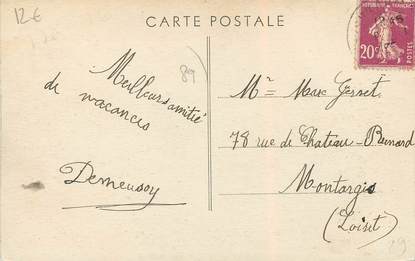 12€
CARTE POSTALE
REPUBLIQUE FRANÇAISE
20c
POSTES
89
Meilleurs amitié
de vacances
Demeusoy
Mr Marc Gesset
78 rue de Chateau-Renard
Montargis
(Loiret)
89